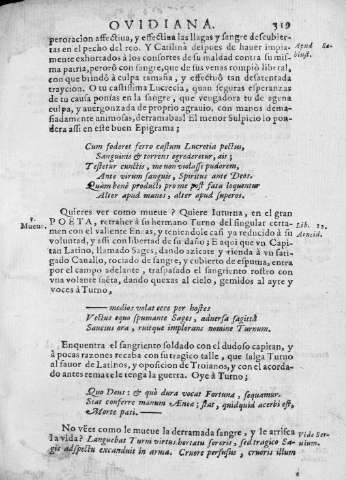 OVIDIANA. 319
peroracion affectiua, y effectiua las llagas y sangre descubier-
tas en el pecho del reo. Y Catilina despues de hauer impia-
mente exhortados à los consortes de su maldad contra su mis-
ma patria, peroró con sangre, que de sus venas rompió liberal,
con que brindò à culpa tamaña, y effectuò tan desatentada
traycion. O tu castissima Lucrecia, quan seguras esperanzas
de tu causa ponias en la sangre, que veugadora tu de agena
culpa, y auergonzada de proprio agrauio, con manos dema-
siadamente animosas, derramabas! El menor Sulpicio lo pon-
dera assi en este buen Epigrama;
Apud Sa-
lust.
Cum foderet ferro castum Lucretia pectus,
Sanguinis & torrens egrederetur, ait;
Testetur cunctis, me non violasse pudorem,
Ante virum sanguis, Spiritus ante Deos.
Quàm benè producti pro me post fata loquentur
Alter apud manes, alter apud Deos.
5.
Mueue.
Quieres ver como mueue? Quiere Iuturna, en el gran
POETA, retraher à su hermano Turno del singular certa-
men con el valiente Eneas, y teniendole casi ya reducido à su
voluntad, y assi con libertad de su daño; E aqui que vn Capi-
tan Latino, llamado Sages, dando azicate y rienda à vn fati-
gado Cauallo, rociado de sangre, y cubierto de espuma, entra
por el campo adelante, traspasado el sangriento rostro con
vna volante saëta, dando quexas al cielo, gemidos al ayre y
voces à Turno,
Lib. 12.
Aeneid.
— medios volat ecce per hostes
Vectus equo spumante Sages, adversa sagittâ
Saucius ora, ruitque implorans nomine Turnum.
Enquentra el sangriento soldado con el dudoso capitan, y
à pocas razones recaba con su tragico talle, que salga Turno
al fauor de Latinos, y oposicion de Troianos, y con el acorda-
do antes remate le tenga la guerra. Oye à Turno;
Quo Deus: & quò dura vocat Fortuna, sequamur.
Stat conferre manum Æneæ; stat, quidquid acerbi est,
Morte pati. —
No vees como le mueue la derramada sangre, y le arrisca
la vida? Languebat Turni virtus hortatu sororis, sed tragico Sa-
gis adspectu excanduit in arma. Cruore perfusus, cruoris illum
Vide Ser-
uium.